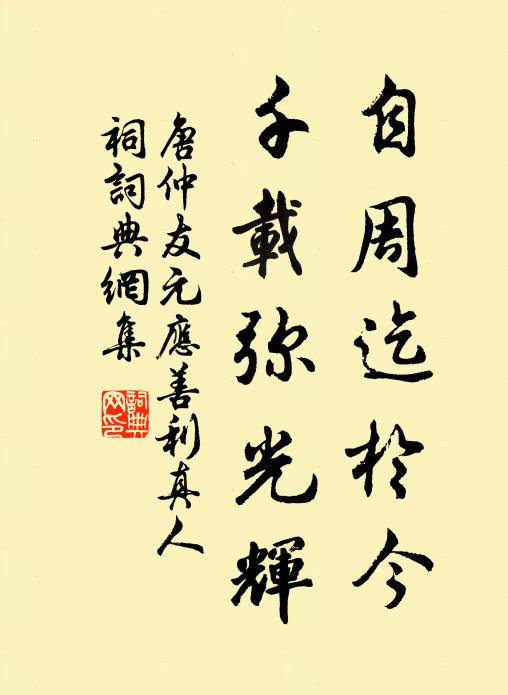 自周迄於今
千載弥光輝
唐仲友元應善利真人
祠詞典網集
詞典网印